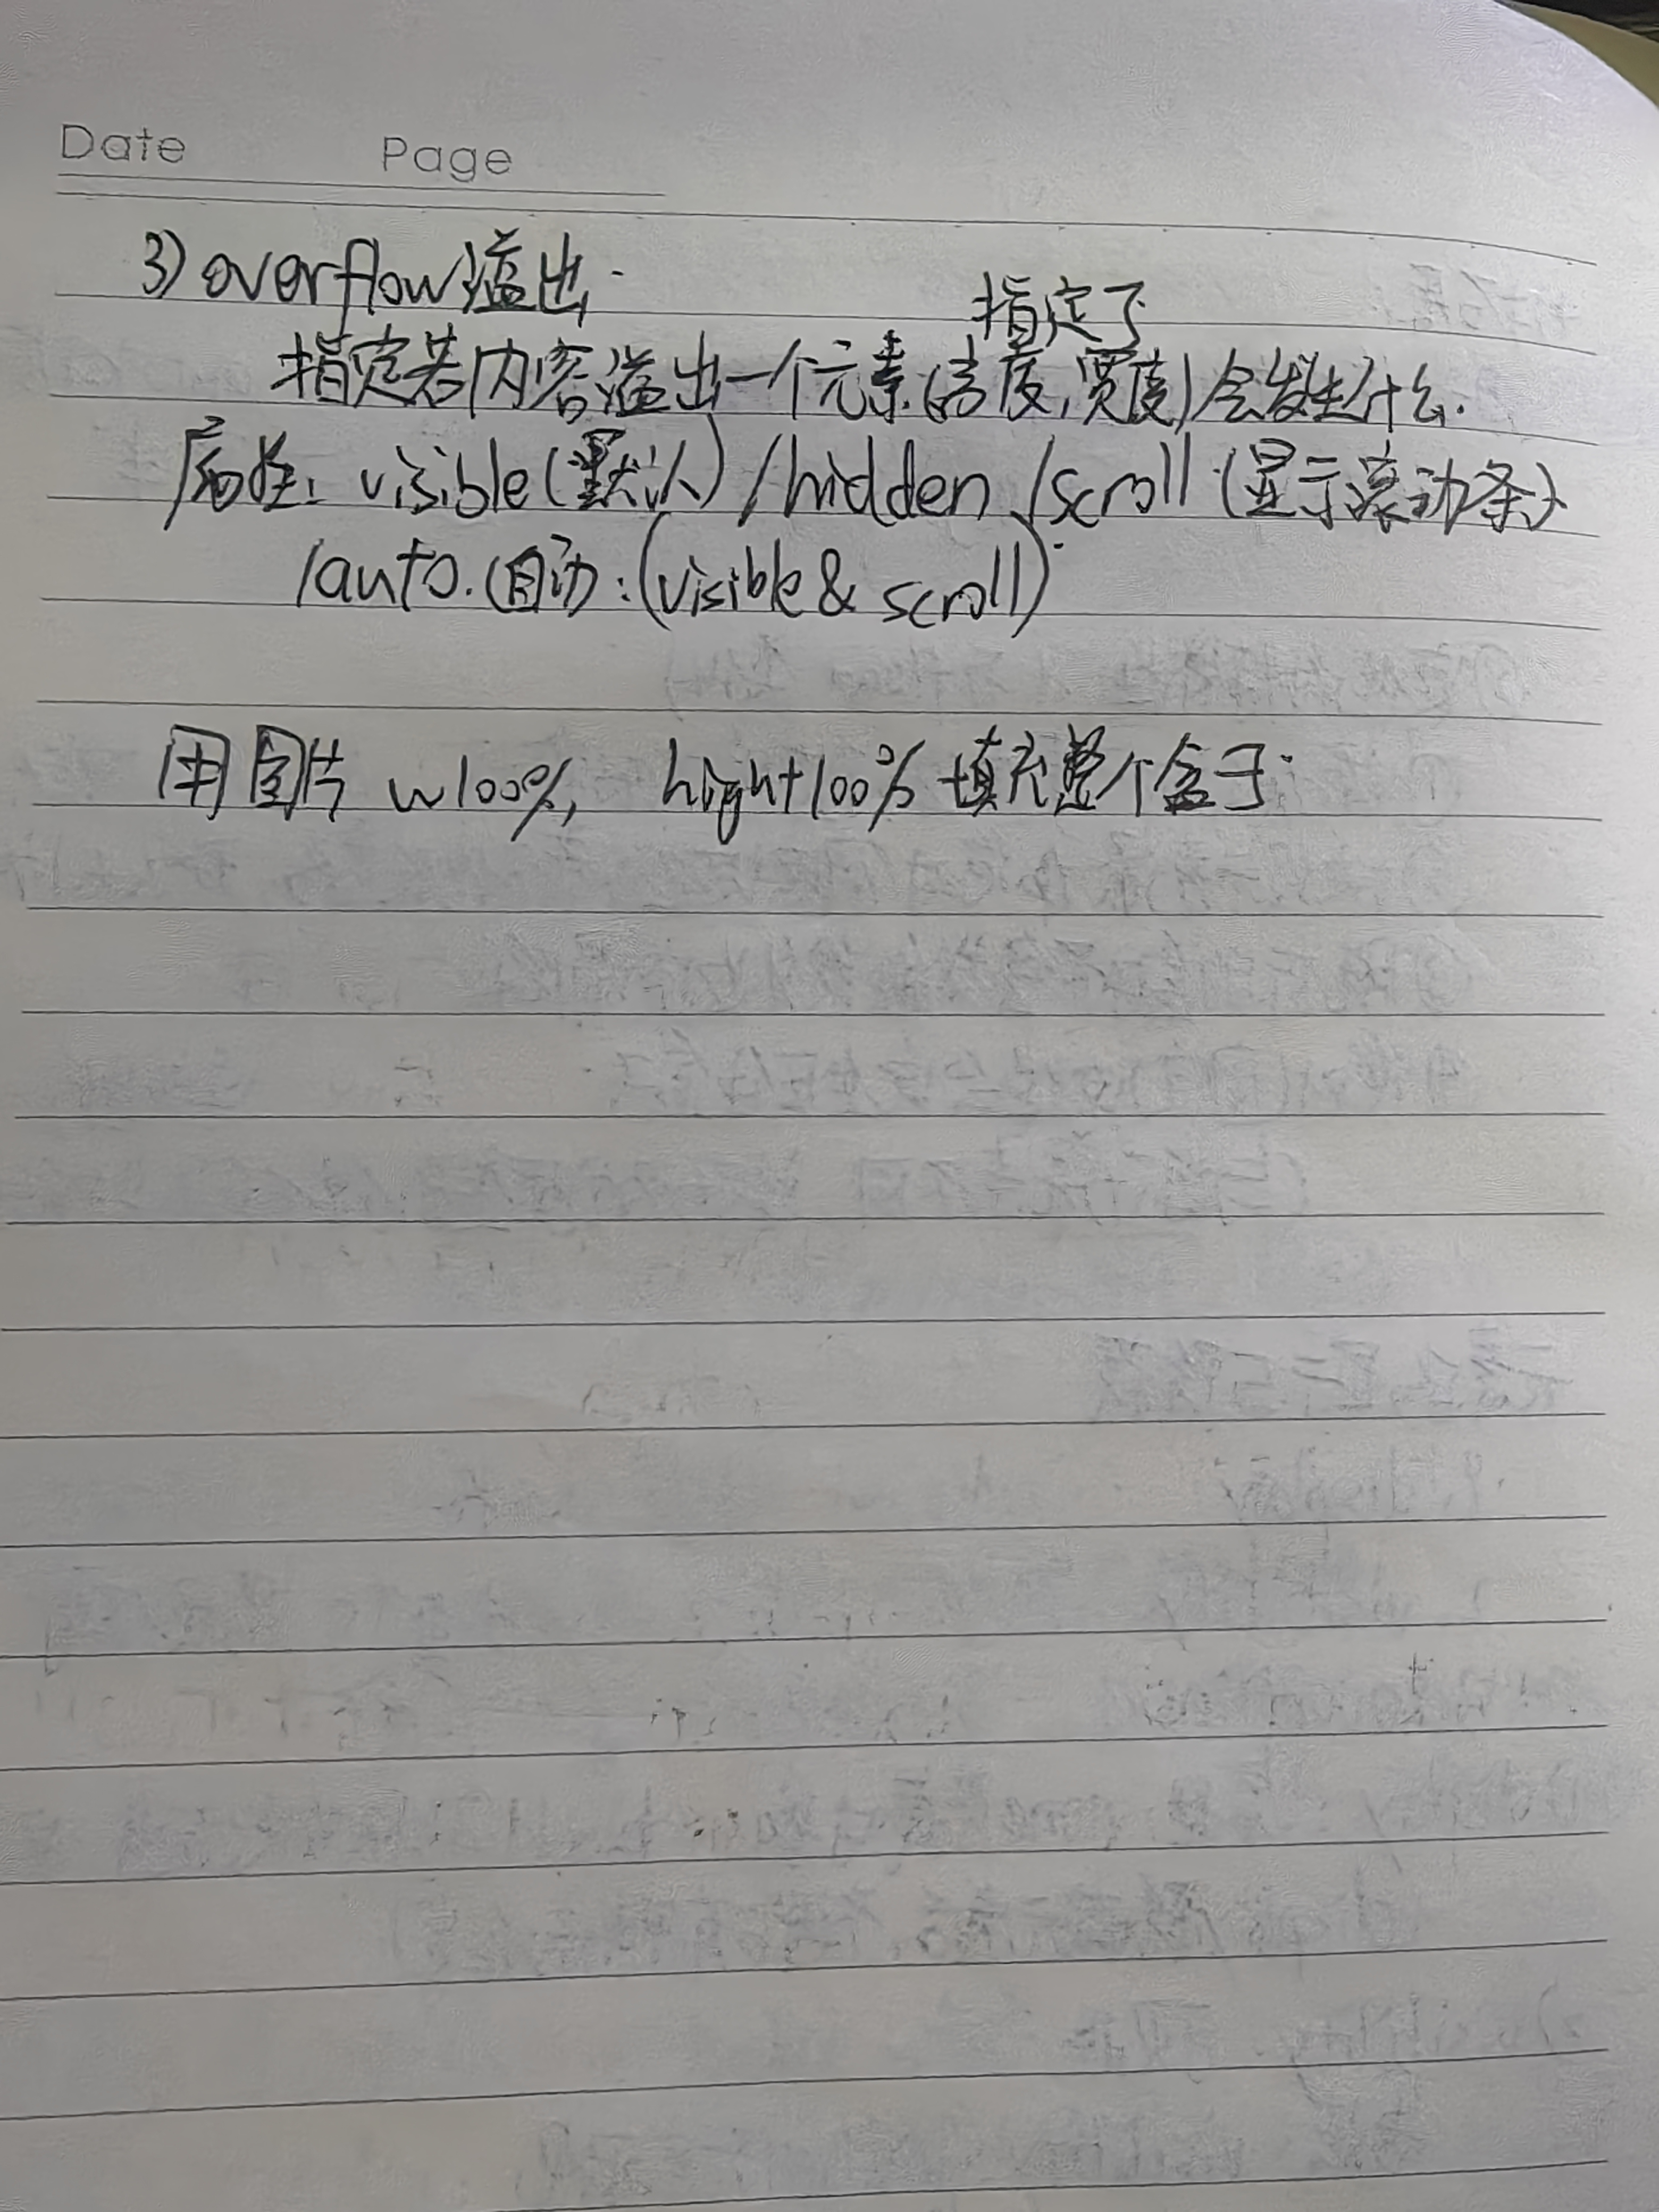 Date Page
3) overflow溢出.
指定了
指定若内容溢出一个元素(高度,宽度)会发生什么.
属性: visible(默认)/hidden/scroll(显示滚动条)
/auto.(自动:(visible & scroll)
用图片 w100%, hight100% 填充整个盒子.